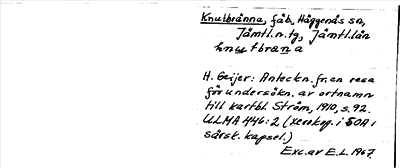 Knutbränna, fäb, Häggenås sn,
Jämtl.n.tg, Jämtl.län
knutbrana
H. Geijer: Anteckn. fr. en resa
för undersökn. av ortnamn
till kartbl. Ström, 1910, s. 92.
ULMA 446:2 (xerokop. i SOA i
särsk. kapsel.)
Exc. av E.L. 1967.